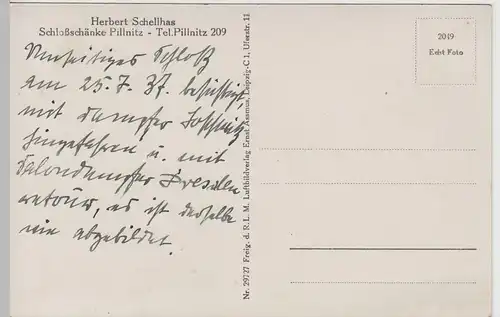 Herbert Schellhas
Schloßschänke Pillnitz - Tel. Pillnitz 209
Umseitiges Schloß
am 25.7.37. besichtigt
mit Dampfer
hingefahren u. mit
Salondampfer Dresden
retour, es ist derselbe
wie abgebildet.
Nr. 29727 Freig. d. R. L. M. Luftbildverlag Ernst Assmus, Leipzig-C 1, Uferstr. 11
2019
Echt Foto